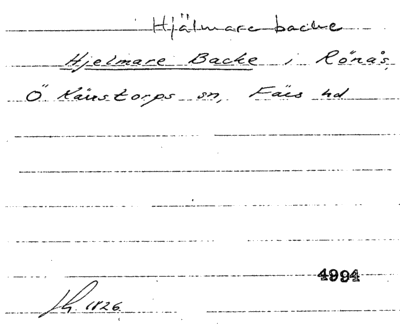 Hjälmare backe
Hjelmare Backe i Rönås,
Ö Kärrstorps sn, Färs hd
4994
1826